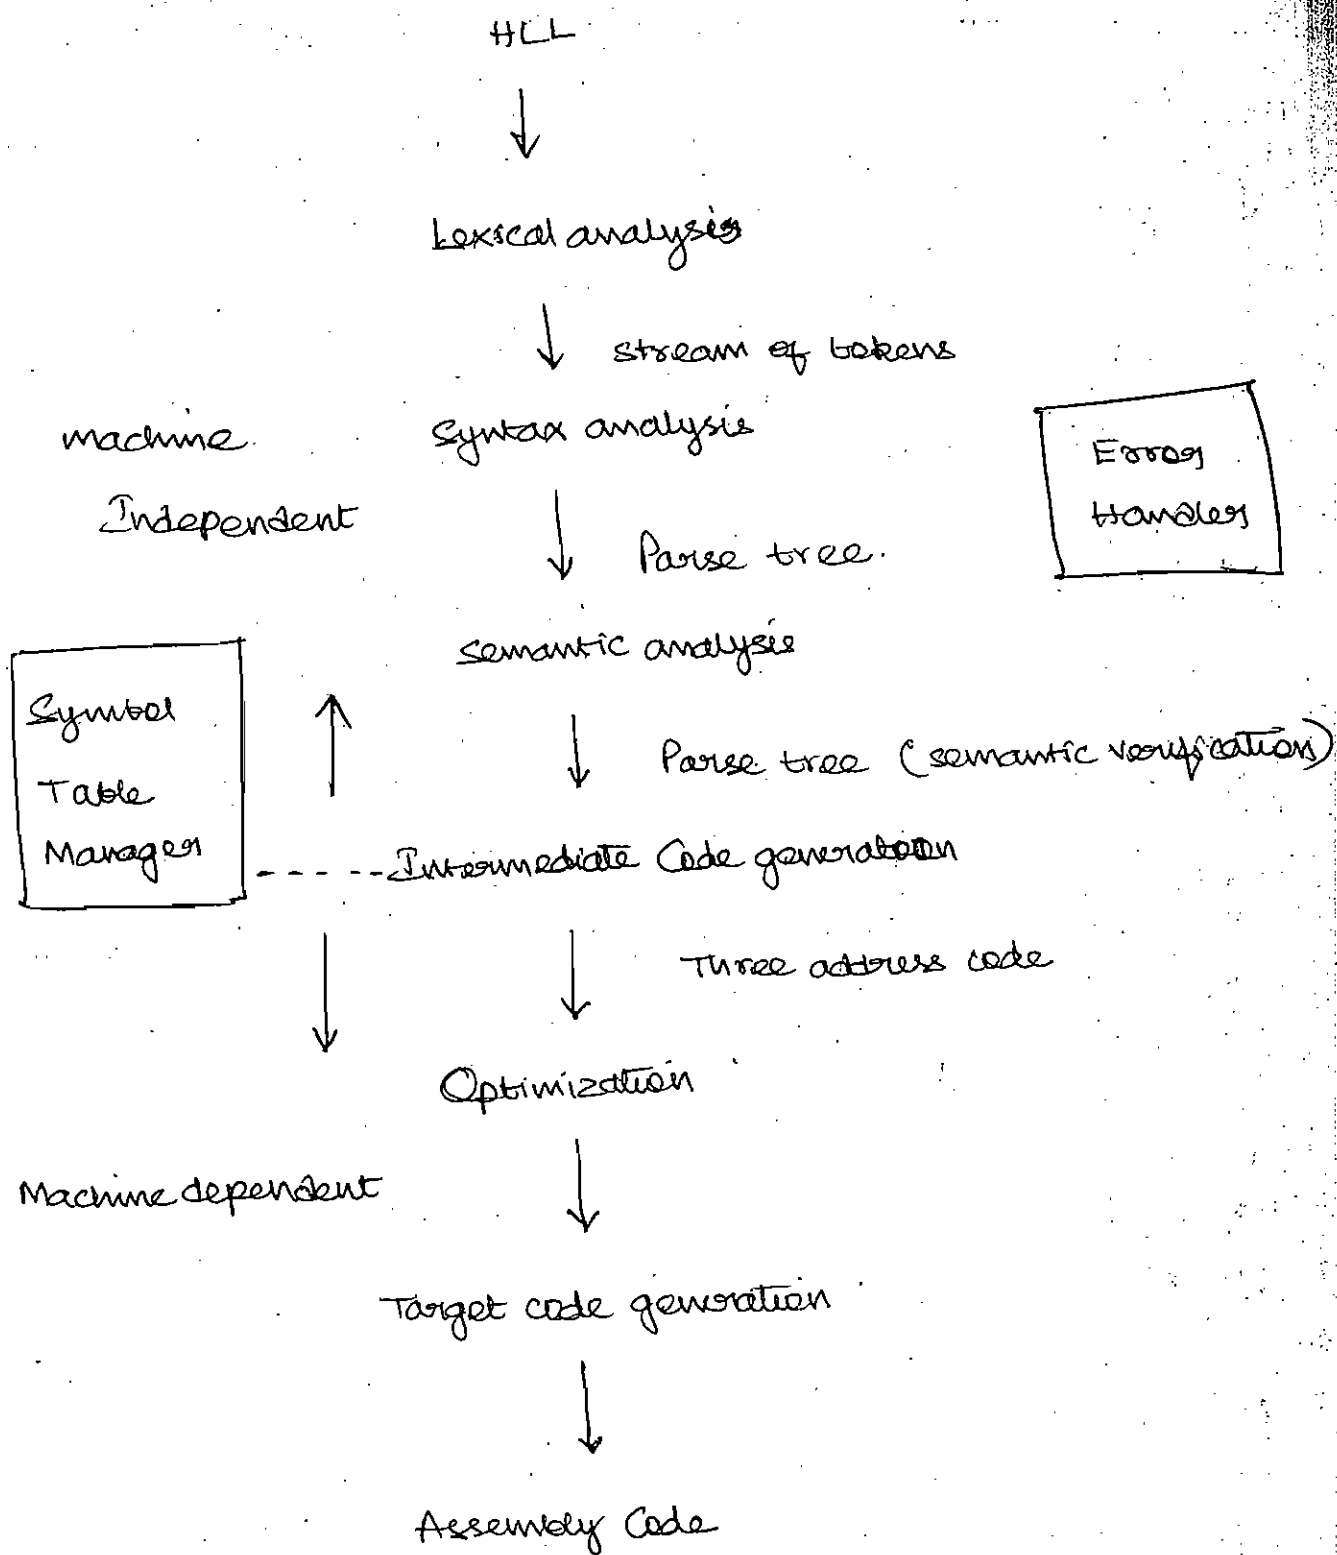 HLL
Lexical analysis
stream of tokens
machine
Independent
Syntax analysis
Error
Handler
Parse tree.
semantic analysis
Symbol
Table
Manager
Parse tree (semantic verification)
Intermediate Code generation
Three address code
Optimization
Machine dependent
Target code generation
Assembly Code